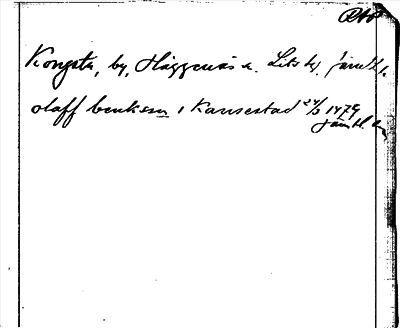 Kongsta, by, Häggenås sn. Lits hd, Jämtl.
olaff benksen i Kansestad 24/3 1479
Jämtl.